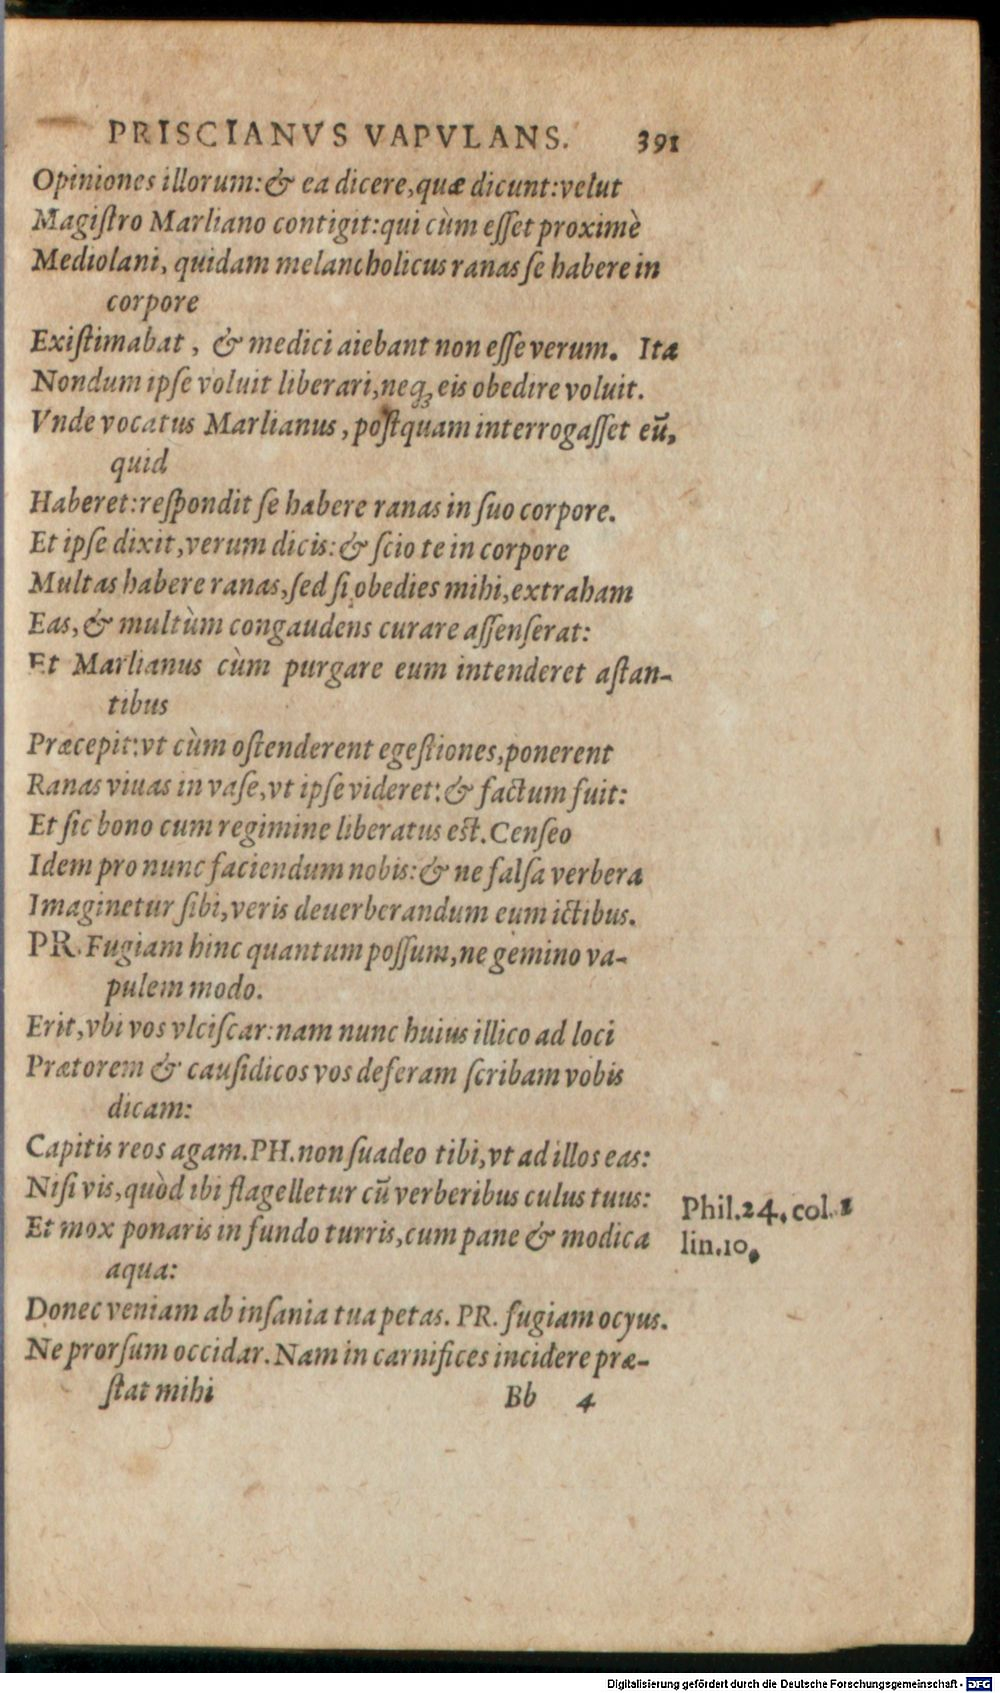 PRISCIANVS VAPVLANS. 391
Opiniones illorum: & ea dicere, quæ dicunt: velut
Magiſtro Marliano contigit: qui cùm eſſet proximè
Mediolani, quidam melancholicus ranas ſe habere in
corpore
Exiſtimabat, & medici aiebant non eſſe verum. Ita
Nondum ipſe voluit liberari, neq; eis obedire voluit.
Vnde vocatus Marlianus, poſtquam interrogaſſet eū,
quid
Haberet: reſpondit ſe habere ranas in ſuo corpore.
Et ipſe dixit, verum dicis: & ſcio te in corpore
Multas habere ranas, ſed ſi obedies mihi, extraham
Eas, & multùm congaudens curare aſſenſerat:
Et Marlianus cùm purgare eum intenderet aſtan-
tibus
Præcepit: vt cùm oſtenderent egeſtiones, ponerent
Ranas viuas in vaſe, vt ipſe videret: & factum fuit:
Et ſic bono cum regimine liberatus eſt. Cenſeo
Idem pro nunc faciendum nobis: & ne falſa verbera
Imaginetur ſibi, veris deuerberandum eum ictibus.
PR. Fugiam hinc quantum poſſum, ne gemino va-
pulem modo.
Erit, vbi vos vlciſcar: nam nunc huius illico ad loci
Prætorem & cauſidicos vos deferam ſcribam vobis
dicam:
Capitis reos agam. PH. non ſuadeo tibi, vt ad illos eas:
Niſi vis, quòd ibi flagelletur cū verberibus culus tuus:
Phil. 24. col. 1
Et mox ponaris in fundo turris, cum pane & modica
lin. 10.
aqua:
Donec veniam ab inſania tua petas. PR. fugiam ocyus.
Ne prorſum occidar. Nam in carnifices incidere præ-
ſtat mihi
Bb 4
Digitalisierung gefördert durch die Deutsche Forschungsgemeinschaft - DFG